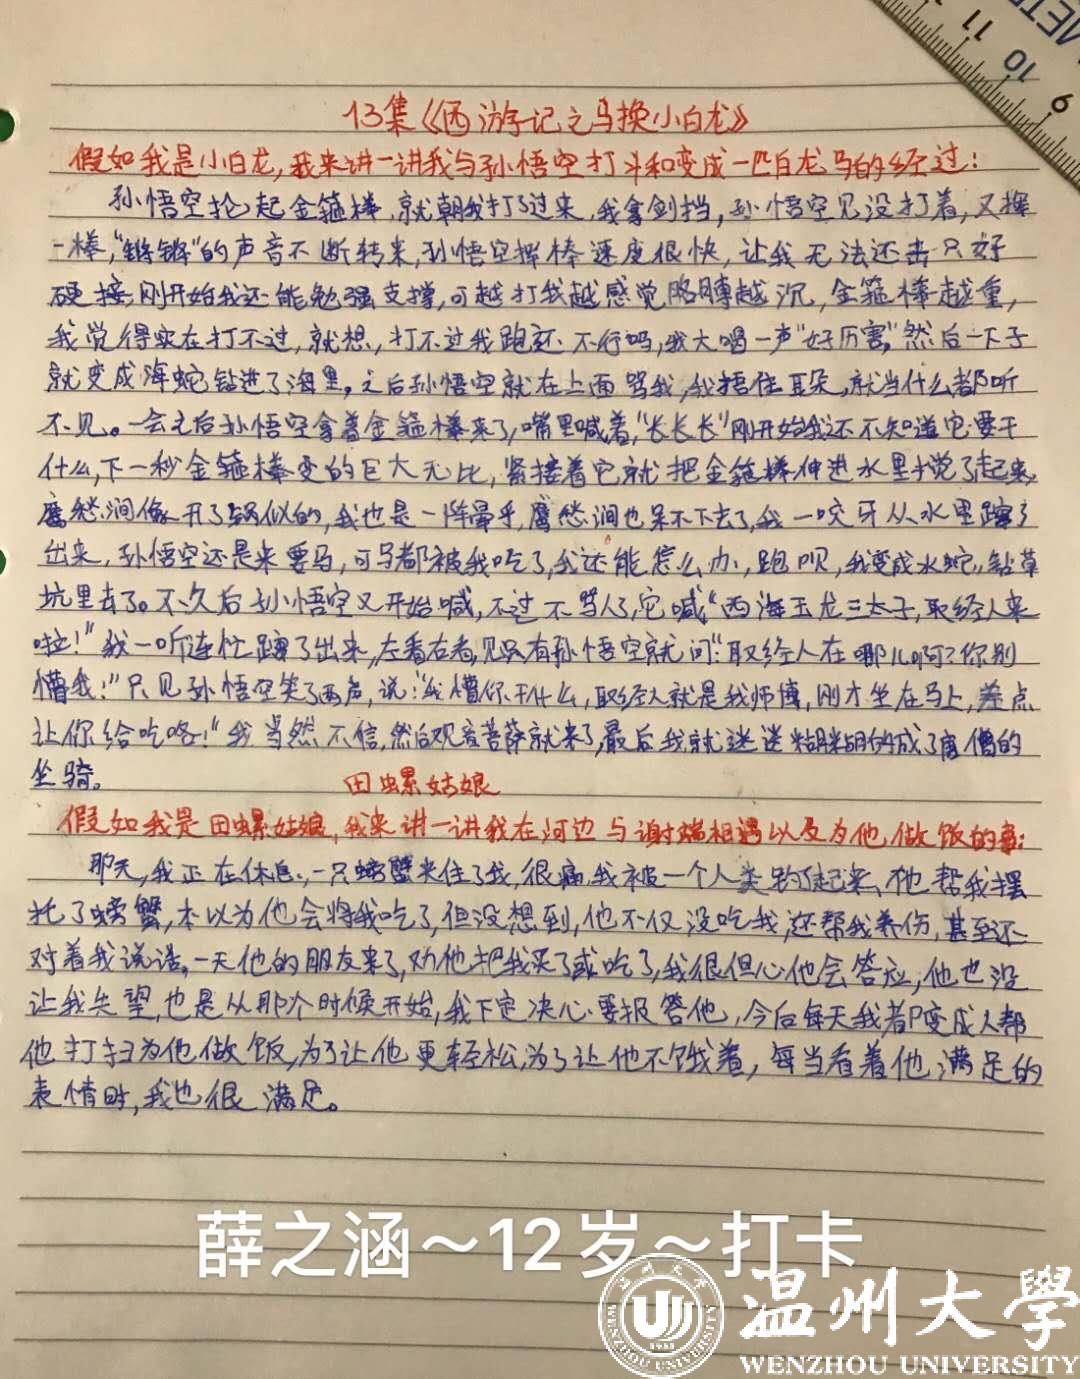 METR
11
10
9
13集《西游记之马换小白龙》
假如我是小白龙,我来讲一讲我与孙悟空打斗和变成一匹白龙马的经过:
孙悟空抡起金箍棒,就朝我打了过来,我拿剑挡,孙悟空见没打着,又挥
一棒,"锵锵"的声音不断转来,孙悟空挥棒速度很快,让我无法还击只好
硬接,刚开始我还能勉强支撑,可越打我越感觉胳膊越沉,金箍棒越重,
我觉得实在打不过,就想,打不过我跑还不行吗,我大喝一声"好厉害,"然后一下子
就变成海蛇钻进了海里。之后孙悟空就在上面骂我,我捂住耳朵,就当什么都听
不见。一会之后孙悟空拿着金箍棒来了,嘴里喊着,"长长长"刚开始我还不知道它要干
什么,下一秒金箍棒变的巨大无比,紧接着它就把金箍棒伸进水里搅了起来,
鹰愁涧像开了锅似的,我也是一阵晕乎,鹰愁涧也呆不下去了,我一咬牙从水里蹿了
出来,孙悟空还是来要马,可马都被我吃了,我还能怎么办,跑呗,我变成水蛇,钻草
坑里去了。不久后孙悟空又开始喊,不过不骂人了,它喊"西海玉龙三太子,取经人来
啦!"我一听连忙蹿了出来,左看右看,见只有孙悟空就问:"取经人在哪儿啊?你别
懵我!"只见孙悟空笑了两声,说:"我懵你干什么,取经人就是我师傅,刚才坐在马上,差点
让你给吃咯!"我当然不信,然后观音菩萨就来了,最后我就迷迷糊糊的成了唐僧的
坐骑。
田螺姑娘
假如我是田螺姑娘,我来讲一讲我在河边与谢端相遇以及为他做饭的事:
那天,我正在休息,一只螃蟹夹住了我,很痛,我被一个人类钓了起来,他帮我摆
托了螃蟹,本以为他会将我吃了,但没想到,他不仅没吃我,还帮我养伤,甚至还
对着我说话。一天他的朋友来了,劝他把我买了或吃了,我很但心他会答应,他也没
让我失望,也是从那个时候开始,我下定决心要报答他,今后每天我都变成人帮
他打扫为他做饭,为了让他更轻松,为了让他不饿着,每当看着他满足的
表情时,我也很满足。
薛之涵~12岁~打卡
温州大学
WENZHOU UNIVERSITY
1933
温州大學
WENZHOU UNIVERSITY